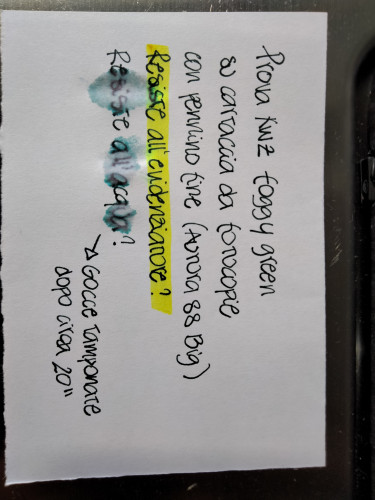 Prova KWZ foggy green
su cartaccia da fotocopie
con pennino fine (Aurora 88 Big)
Resiste all'evidenziatore?
Resiste all'acqua?
↳ Gocce tamponate
dopo circa 20"